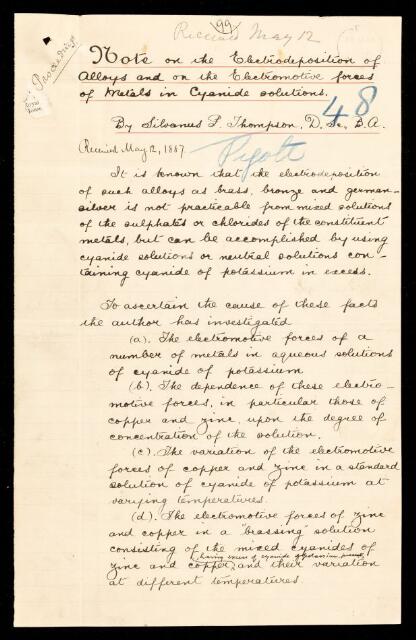 99
Received May 12
Proceedings
Royal
Note on the Electrodeposition of
Alloys and on the Electromotive forces
of Metals in Cyanide solutions.
48
By Silvanus P. Thompson, D. Sc., B.A.
(Received May 12, 1887.
It is known that the electrodeposition
of such alloys as brass, bronze and german-
silver is not practicable from mixed solutions
of the sulphates or chlorides of the constituent
metals, but can be accomplished by using
cyanide solutions or neutral solutions con-
taining cyanide of potassium in excess.
To ascertain the cause of these facts
the author has investigated
(a). The electromotive forces of a
number of metals in aqueous solutions
of cyanide of potassium
(b). The dependence of these electro-
motive forces, in particular those of
copper and zinc, upon the degree of
concentration of the solution.
(c). The variation of the electromotive
forces of copper and zinc in a standard
solution of cyanide of potassium at
varying temperatures.
(d). The electromotive forces of zinc
and copper in a "brassing" solution
consisting of the mixed cyanides of
having excess of cyanide of potassium present
zinc and copper, and their variation
at different temperatures.